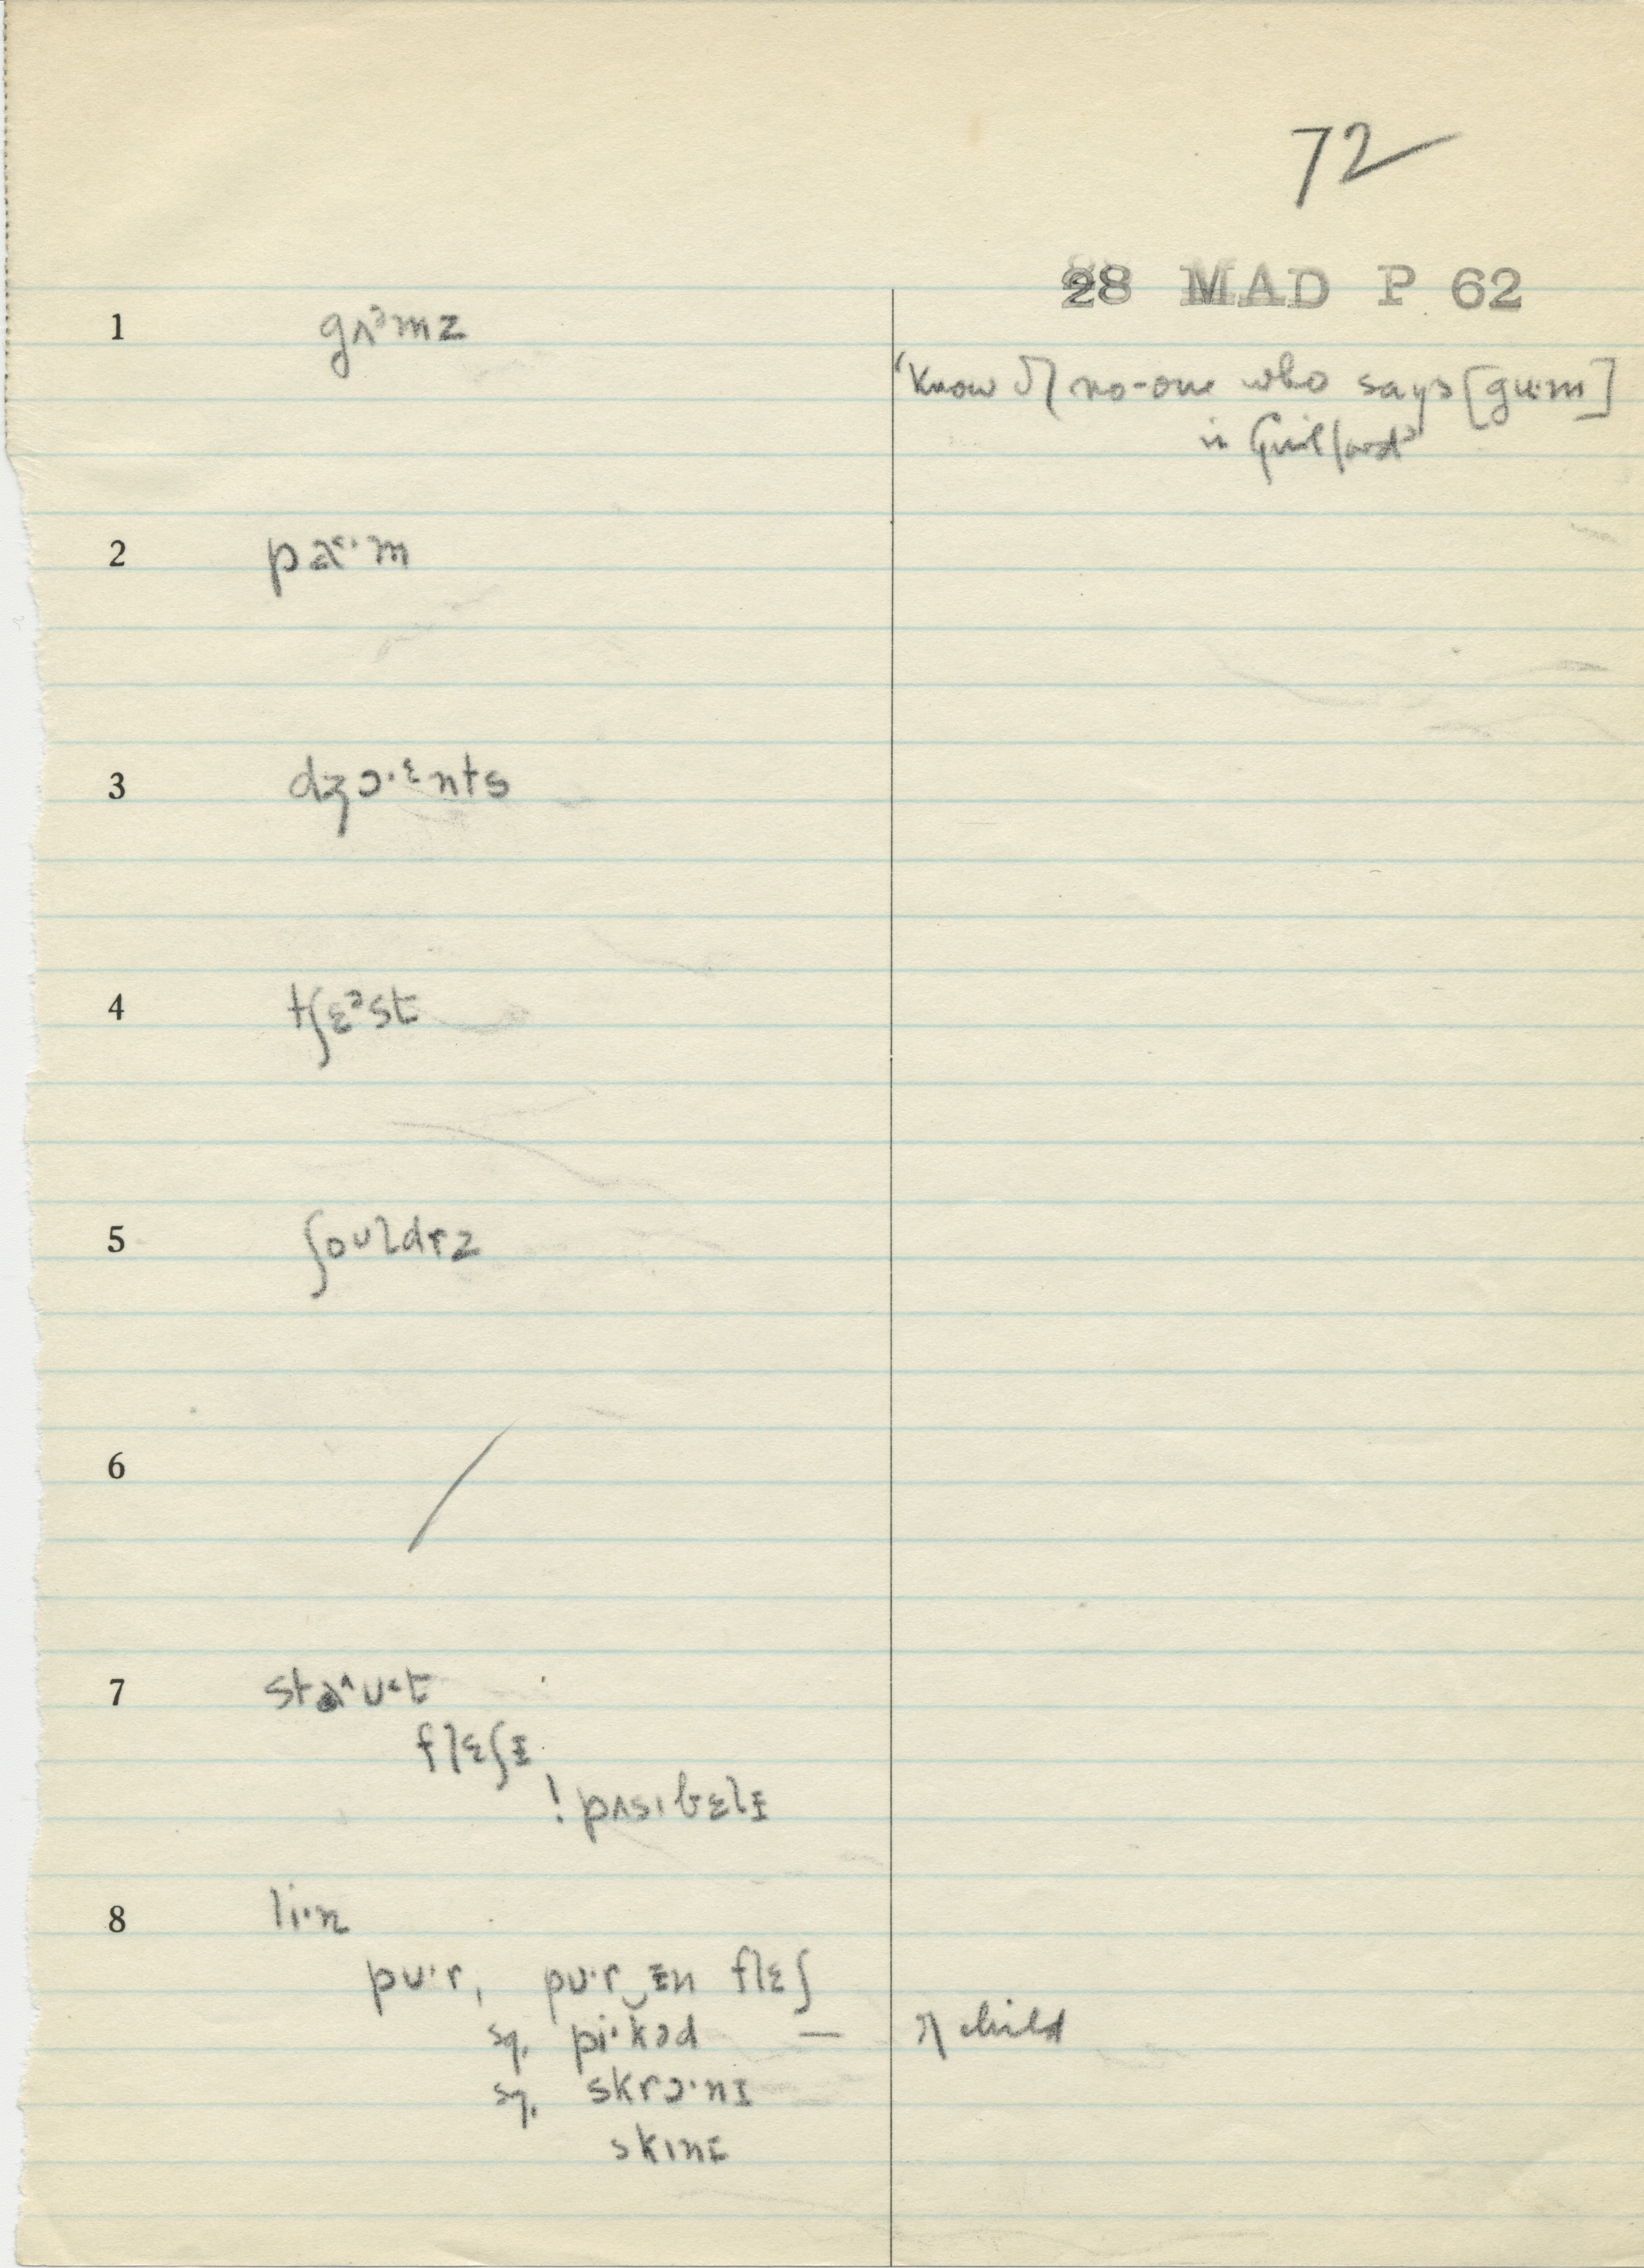 72
28 MAD P 62
1 gʌᵊmz
'Know of no-one who says [gu·m]
in Guilford'
2 pa·m
3 dʒɔ·ᶓnts
4 tʃɛᵊst
5 ʃouldrz
6 /
7 staʌut
flɛʃɪ
! pʌsɪbɛlɪ
8 li·n
pu·r, pu·r‿ɪn flɛʃ
sq. pi·kəd — of child
sq. skrɔ·nɪ
skɪnɪ